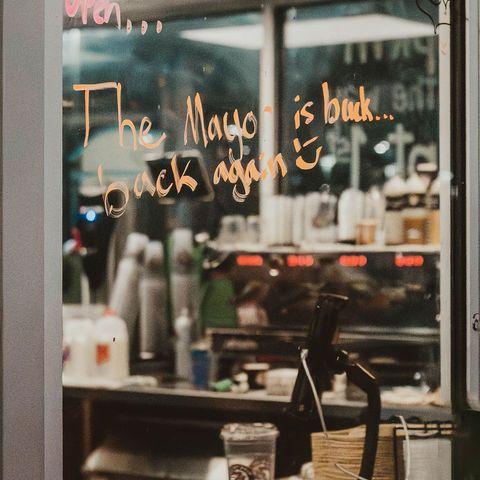 open...
The Mayo is back...
back again